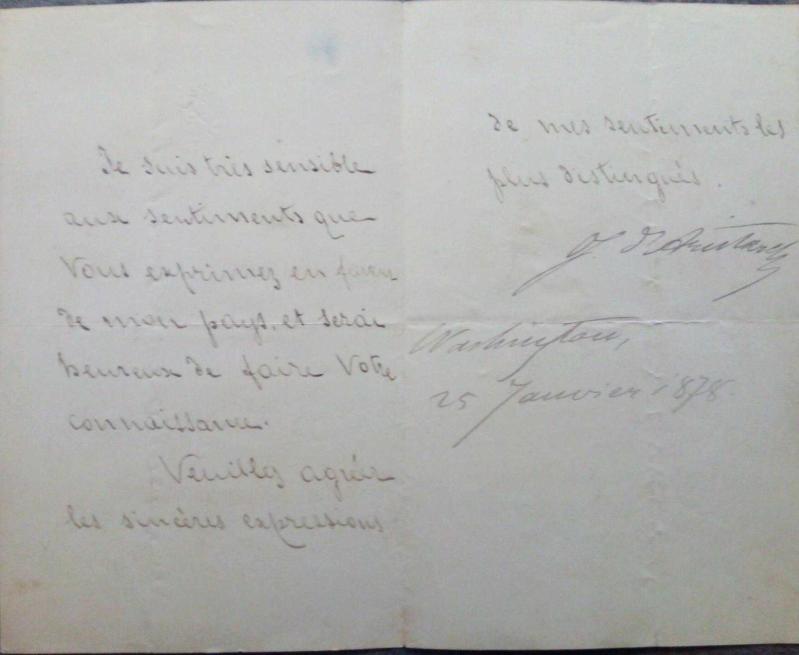 Je suis très sensible
aux sentiments que
Vous exprimez en faveur
de mon pays, et serai
heureux de faire Votre
connaissance.
Veuillez agréer
les sincères expressions
de mes sentiments les
plus distingués.
G. d'Aristarchi
Washington,
25 Janvier 1878.